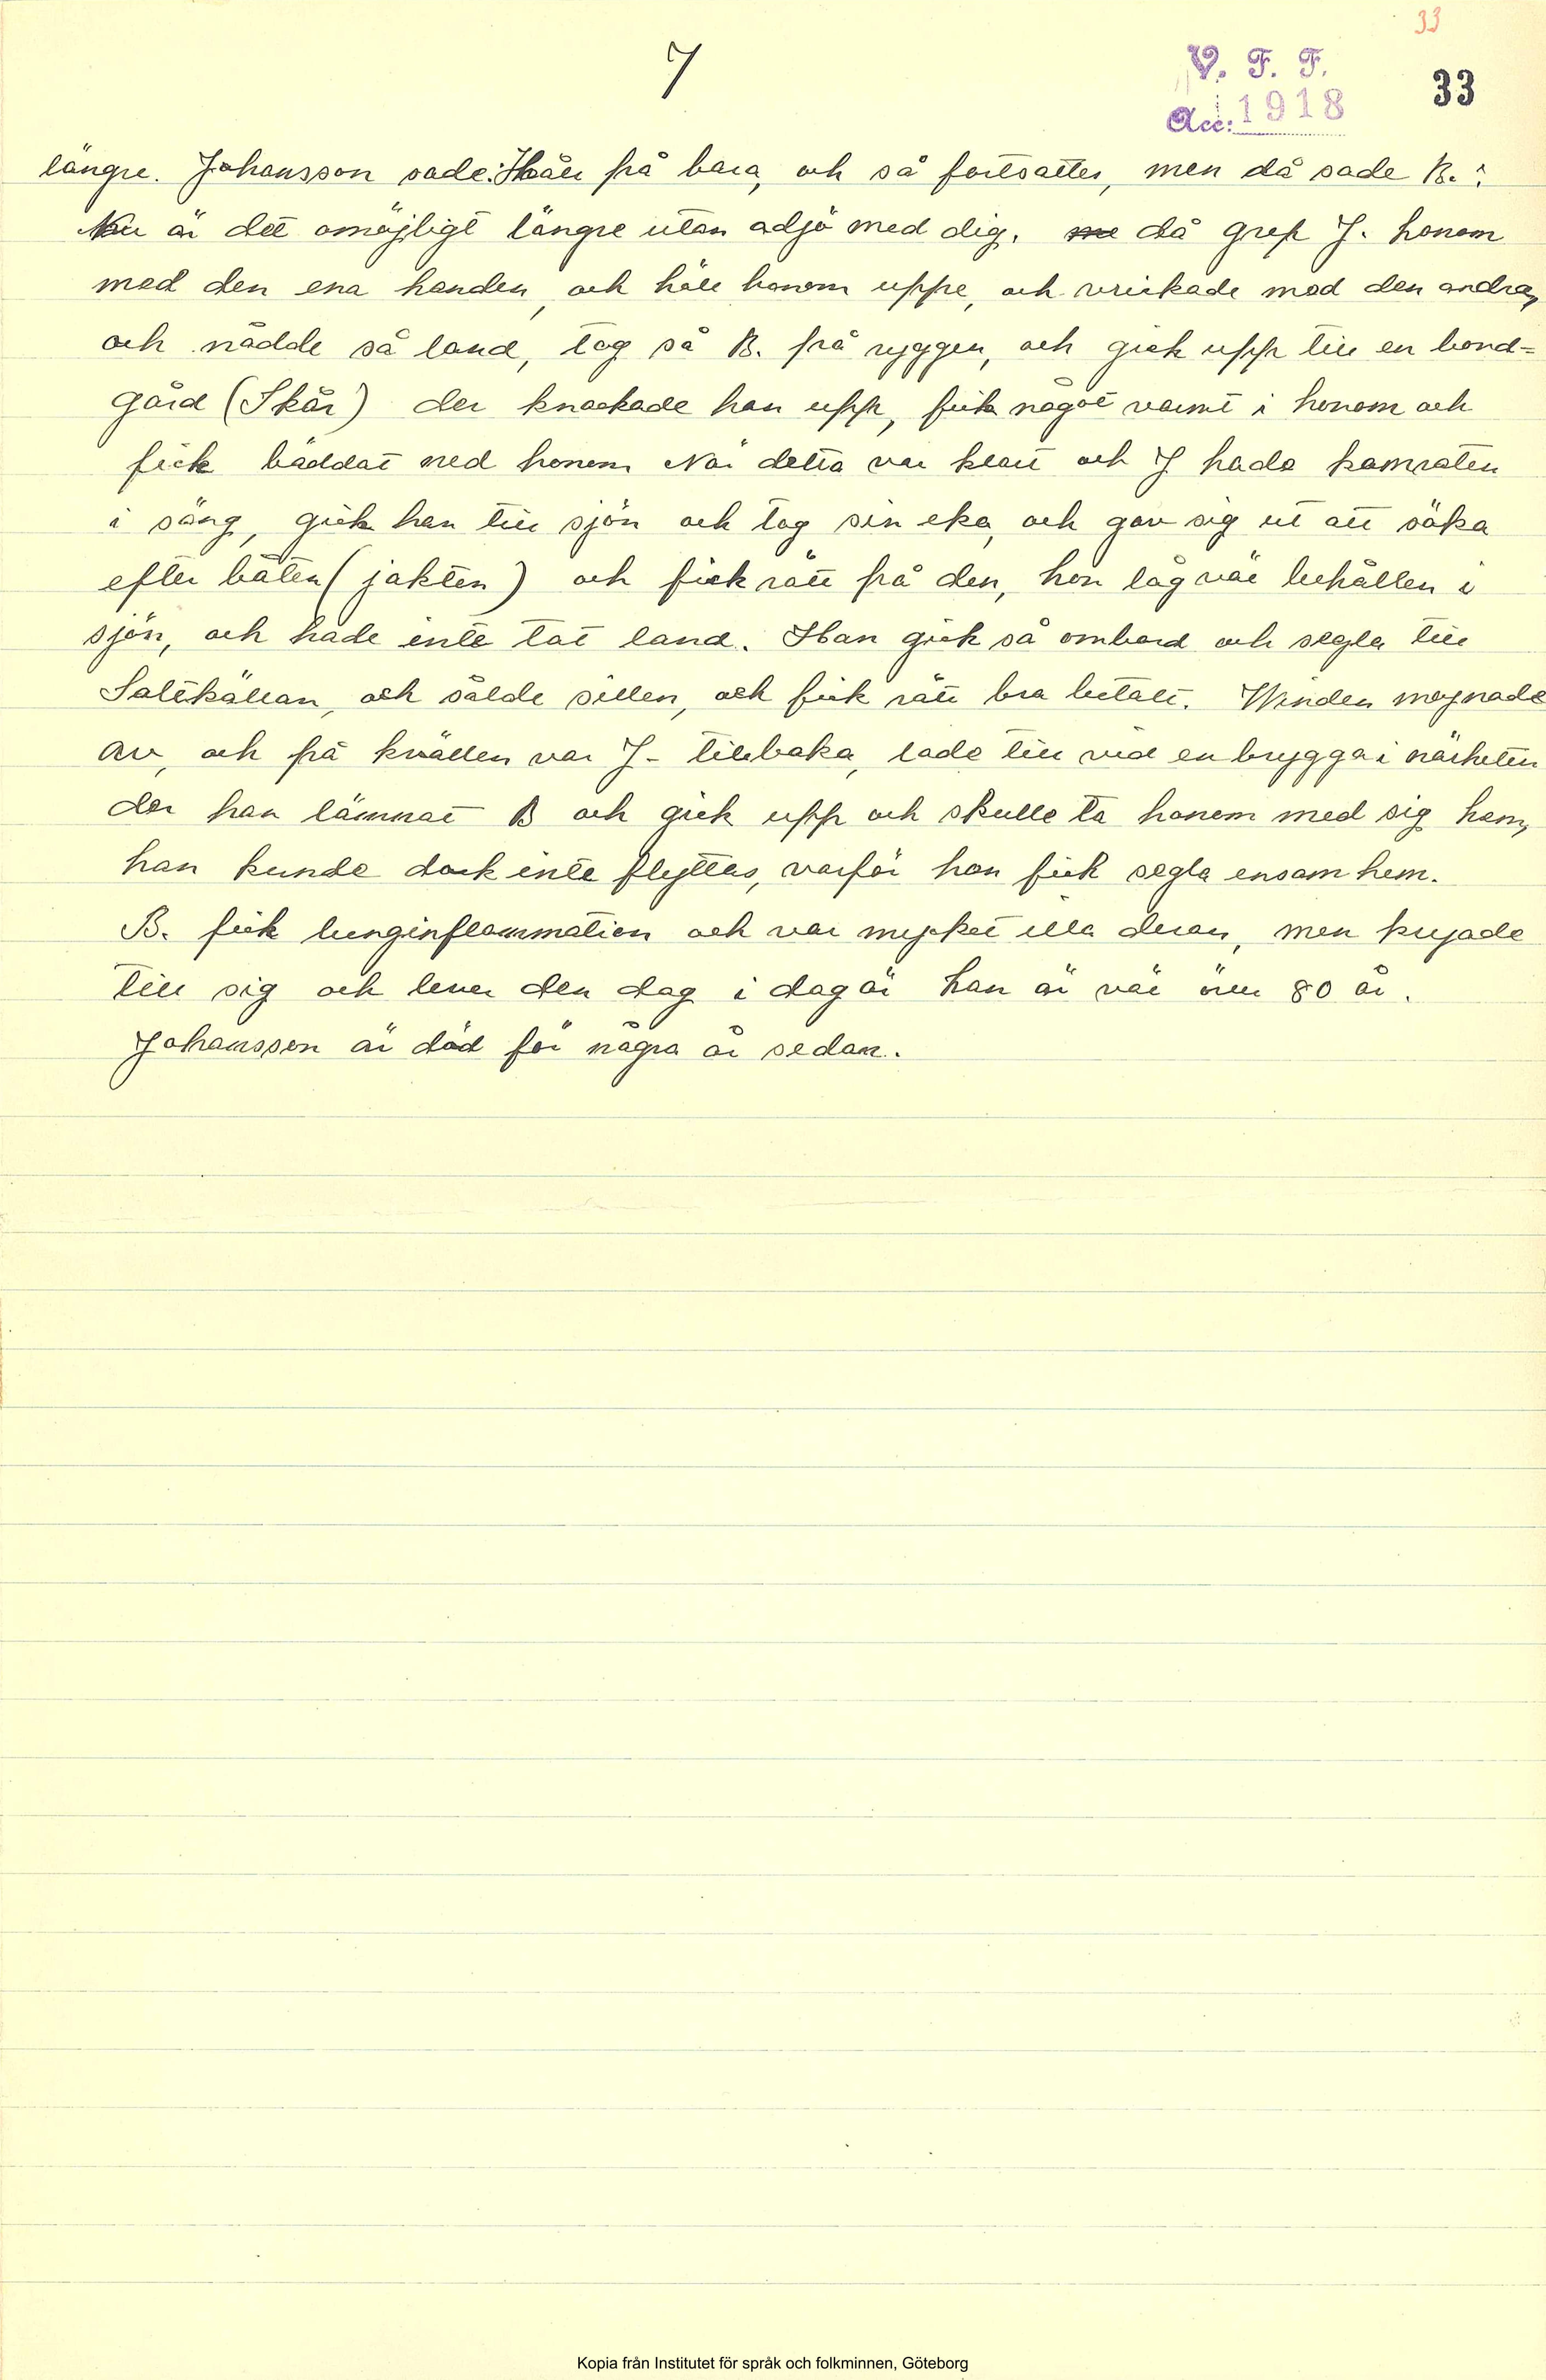 33
7
V. F. F.
33
Acc: 1918
längre. Johansson sade: Håll på bara, och så fortsattes, men då sade B.:
Nu är det omöjligt längre utan adjö med dig. då grep J. honom
med den ena handen, och höll honom uppe, och vrickade med den andra,
och nådde så land, tog så B. på ryggen, och gick upp till en bond-
gård (Skår) der knackade han upp, fick något varmt i honom och
fick bäddat ned honom När detta var klart och J hade kamraten
i säng, gick han till sjön och tog sin eka, och gav sig ut att söka
efter båten (jakten) och fick rätt på den, hon låg väl behållen i
sjön, och hade inte tat land. Han gick så ombord och segla till
Saltkällan, och sålde sillen, och fick rätt bra betalt. Winden mojnade
av, och på kvällen var J- tillbaka, lade till vid en brygga i närheten
der han lämnat B och gick upp och skulle ta honom med sig hem,
han kunde dock inte flyttas, varför han fick segla ensam hem.
B. fick lunginflammation och var mycket illa deran, men kryade
till sig och lever den dag i dag är han är väl över 80 år.
Johansson är död för några år sedan.
Kopia från Institutet för språk och folkminnen, Göteborg